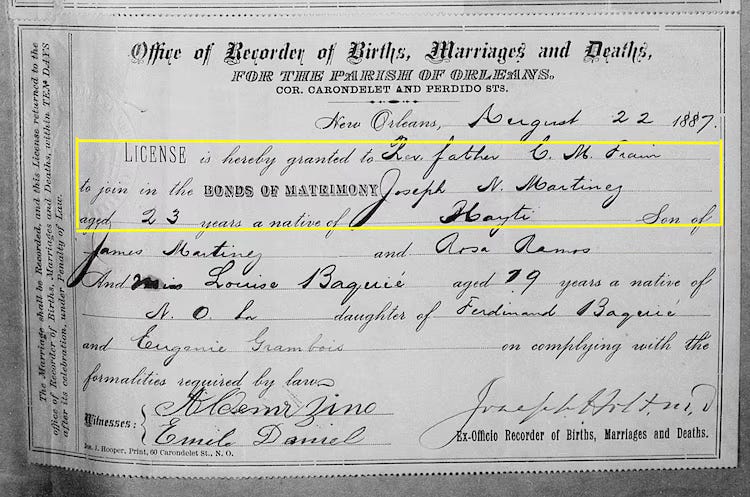 Office of Recorder of Births, Marriages and Deaths,
FOR THE PARISH OF ORLEANS,
COR. CARONDELET AND PERDIDO STS.
New Orleans, August 22 1887.
LICENSE is hereby granted to Rev. father C. M. Frain
to join in the BONDS OF MATRIMONY Joseph N. Martinez
aged 23 years a native of Hayti Son of
James Martinez and Rosa Ramos
And Miss Louise Baquié aged 19 years a native of
N. O. La daughter of Ferdinand Baquié
and Eugenie Grambois on complying with the
formalities required by law.
Witnesses:
Emile Daniel
Joseph Holt M.D
Ex-Officio Recorder of Births, Marriages and Deaths.
Jas. J. Hooper, Print, 60 Carondelet St., N. O.
The Marriage shall be Recorded, and this License returned to the
office of Recorder of Births, Marriages and Deaths, within TEN DAYS
after its celebration, under Penalty of Law.